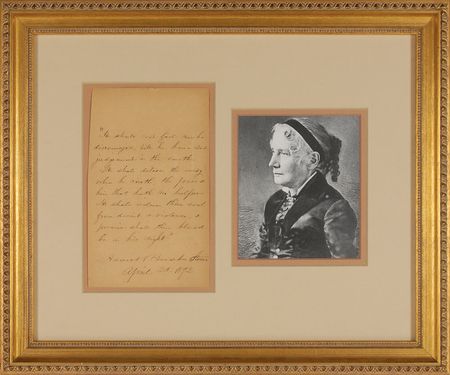 "He shall not fail nor be
discouraged, till he have set
judgement in the earth.
He shall deliver the needy
when he crieth the poor and
him that hath no helper.
He shall redeem their soul
from deceit & violence, &
precious shall their blood
be in his sight"
Harriet Beecher Stowe
April 1892